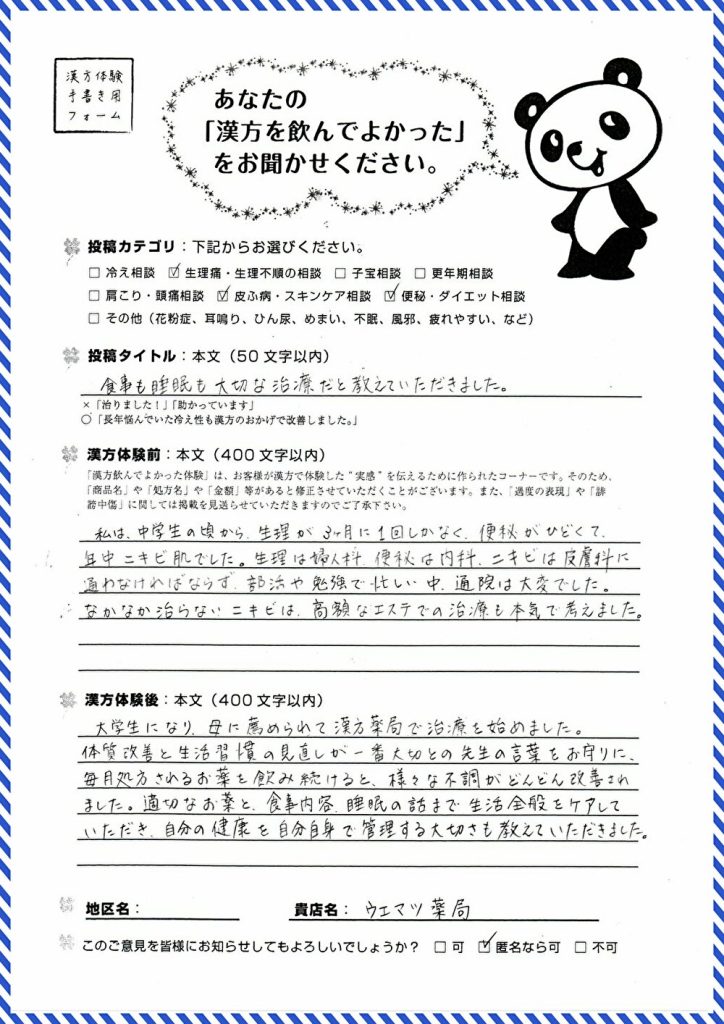 漢方体験
手書き用
フォーム
あなたの
「漢方を飲んでよかった」
をお聞かせください。
投稿カテゴリ：下記からお選びください。
□ 冷え相談 ☑ 生理痛・生理不順の相談 □ 子宝相談 □ 更年期相談
□ 肩こり・頭痛相談 ☑ 皮ふ病・スキンケア相談 ☑ 便秘・ダイエット相談
□ その他（花粉症、耳鳴り、ひん尿、めまい、不眠、風邪、疲れやすい、など）
投稿タイトル：本文（50文字以内）
食事も睡眠も大切な治療だと教えていただきました。
×「治りました！」「助かっています」
○「長年悩んでいた冷え性も漢方のおかげで改善しました。」
漢方体験前：本文（400文字以内）
「漢方飲んでよかった体験」は、お客様が漢方で体験した"実感"を伝えるために作られたコーナーです。そのため、
「商品名」や「処方名」や「金額」等があると修正させていただくことがございます。また、「過度の表現」や「誹
謗中傷」に関しては掲載を見送らせていただきますのでご了承下さい。
私は、中学生の頃から、生理が3ヶ月に1回しかなく、便秘がひどくて、
年中ニキビ肌でした。生理は婦人科、便秘は内科、ニキビは皮膚科に
通わなければならず、部活や勉強で忙しい中、通院は大変でした。
なかなか治らないニキビは、高額なエステでの治療も本気で考えました。
漢方体験後：本文（400文字以内）
大学生になり、母に薦められて漢方薬局で治療を始めました。
体質改善と生活習慣の見直しが一番大切との先生の言葉をお守りに、
毎月処方されるお薬を飲み続けると、様々な不調がどんどん改善され
ました。適切なお薬と、食事内容、睡眠の話まで生活全般をケアして
いただき、自分の健康を自分自身で管理する大切さも教えていただきました。
地区名： 貴店名：ウエマツ薬局
このご意見を皆様にお知らせしてもよろしいでしょうか？ □ 可 ☑ 匿名なら可 □ 不可